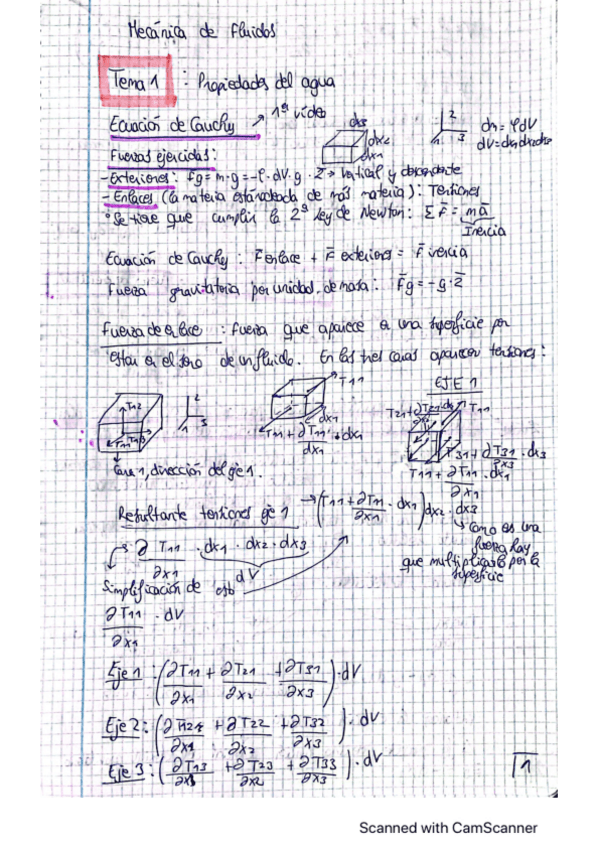 Mecánica de Fluidos
Tema 1 : Propiedades del agua
Ecuación de Cauchy → 1er vídeo
dx3
dx2
dx1
2
1 3
dm = ρdV
dV = dx1dx2dx3
Fuerzas ejercidas:
- Exteriores: Fg = m·g = -ρ·dV·g·Z → vertical y descendente
- Enlaces (la materia está rodeada de más materia): Tensiones
° Se tiene que cumplir la 2ª ley de Newton: ΣF̄ = mā
Inercia
Ecuación de Cauchy: F̄ enlace + F̄ exteriores = F̄ inercia
Fuerza gravitatoria por unidad de masa: F̄g = -g·Z̄
Fuerza de enlace: fuerza que aparece en una superficie por
estar en el seno de un fluido. En las tres caras aparecen tensiones:
EJE 1
T12
T11
T13
2
1 3
T11
dx1
T11 + ∂T11/dx1 · dx1
T21 + ∂T21/∂x2 dx2
T11
T31 + ∂T31/∂x3 · dx3
T11 + ∂T11/∂x1 · dx1
Cara 1, dirección del eje 1.
Resultante tensiones eje 1 → (T11 + ∂T11/∂x1 · dx1) dx2 · dx3
↳ Como es una
fuerza hay
que multiplicarlo por la
superficie
∂T11/∂x1 · dx1 · dx2 · dx3
dV
Simplificación de esto
∂T11/∂x1 · dV
Eje 1 : (∂T11/∂x1 + ∂T21/∂x2 + ∂T31/∂x3) · dV
Eje 2 : (∂T12/∂x1 + ∂T22/∂x2 + ∂T32/∂x3) · dV
Eje 3 : (∂T13/∂x1 + ∂T23/∂x2 + ∂T33/∂x3) · dV
1
Scanned with CamScanner